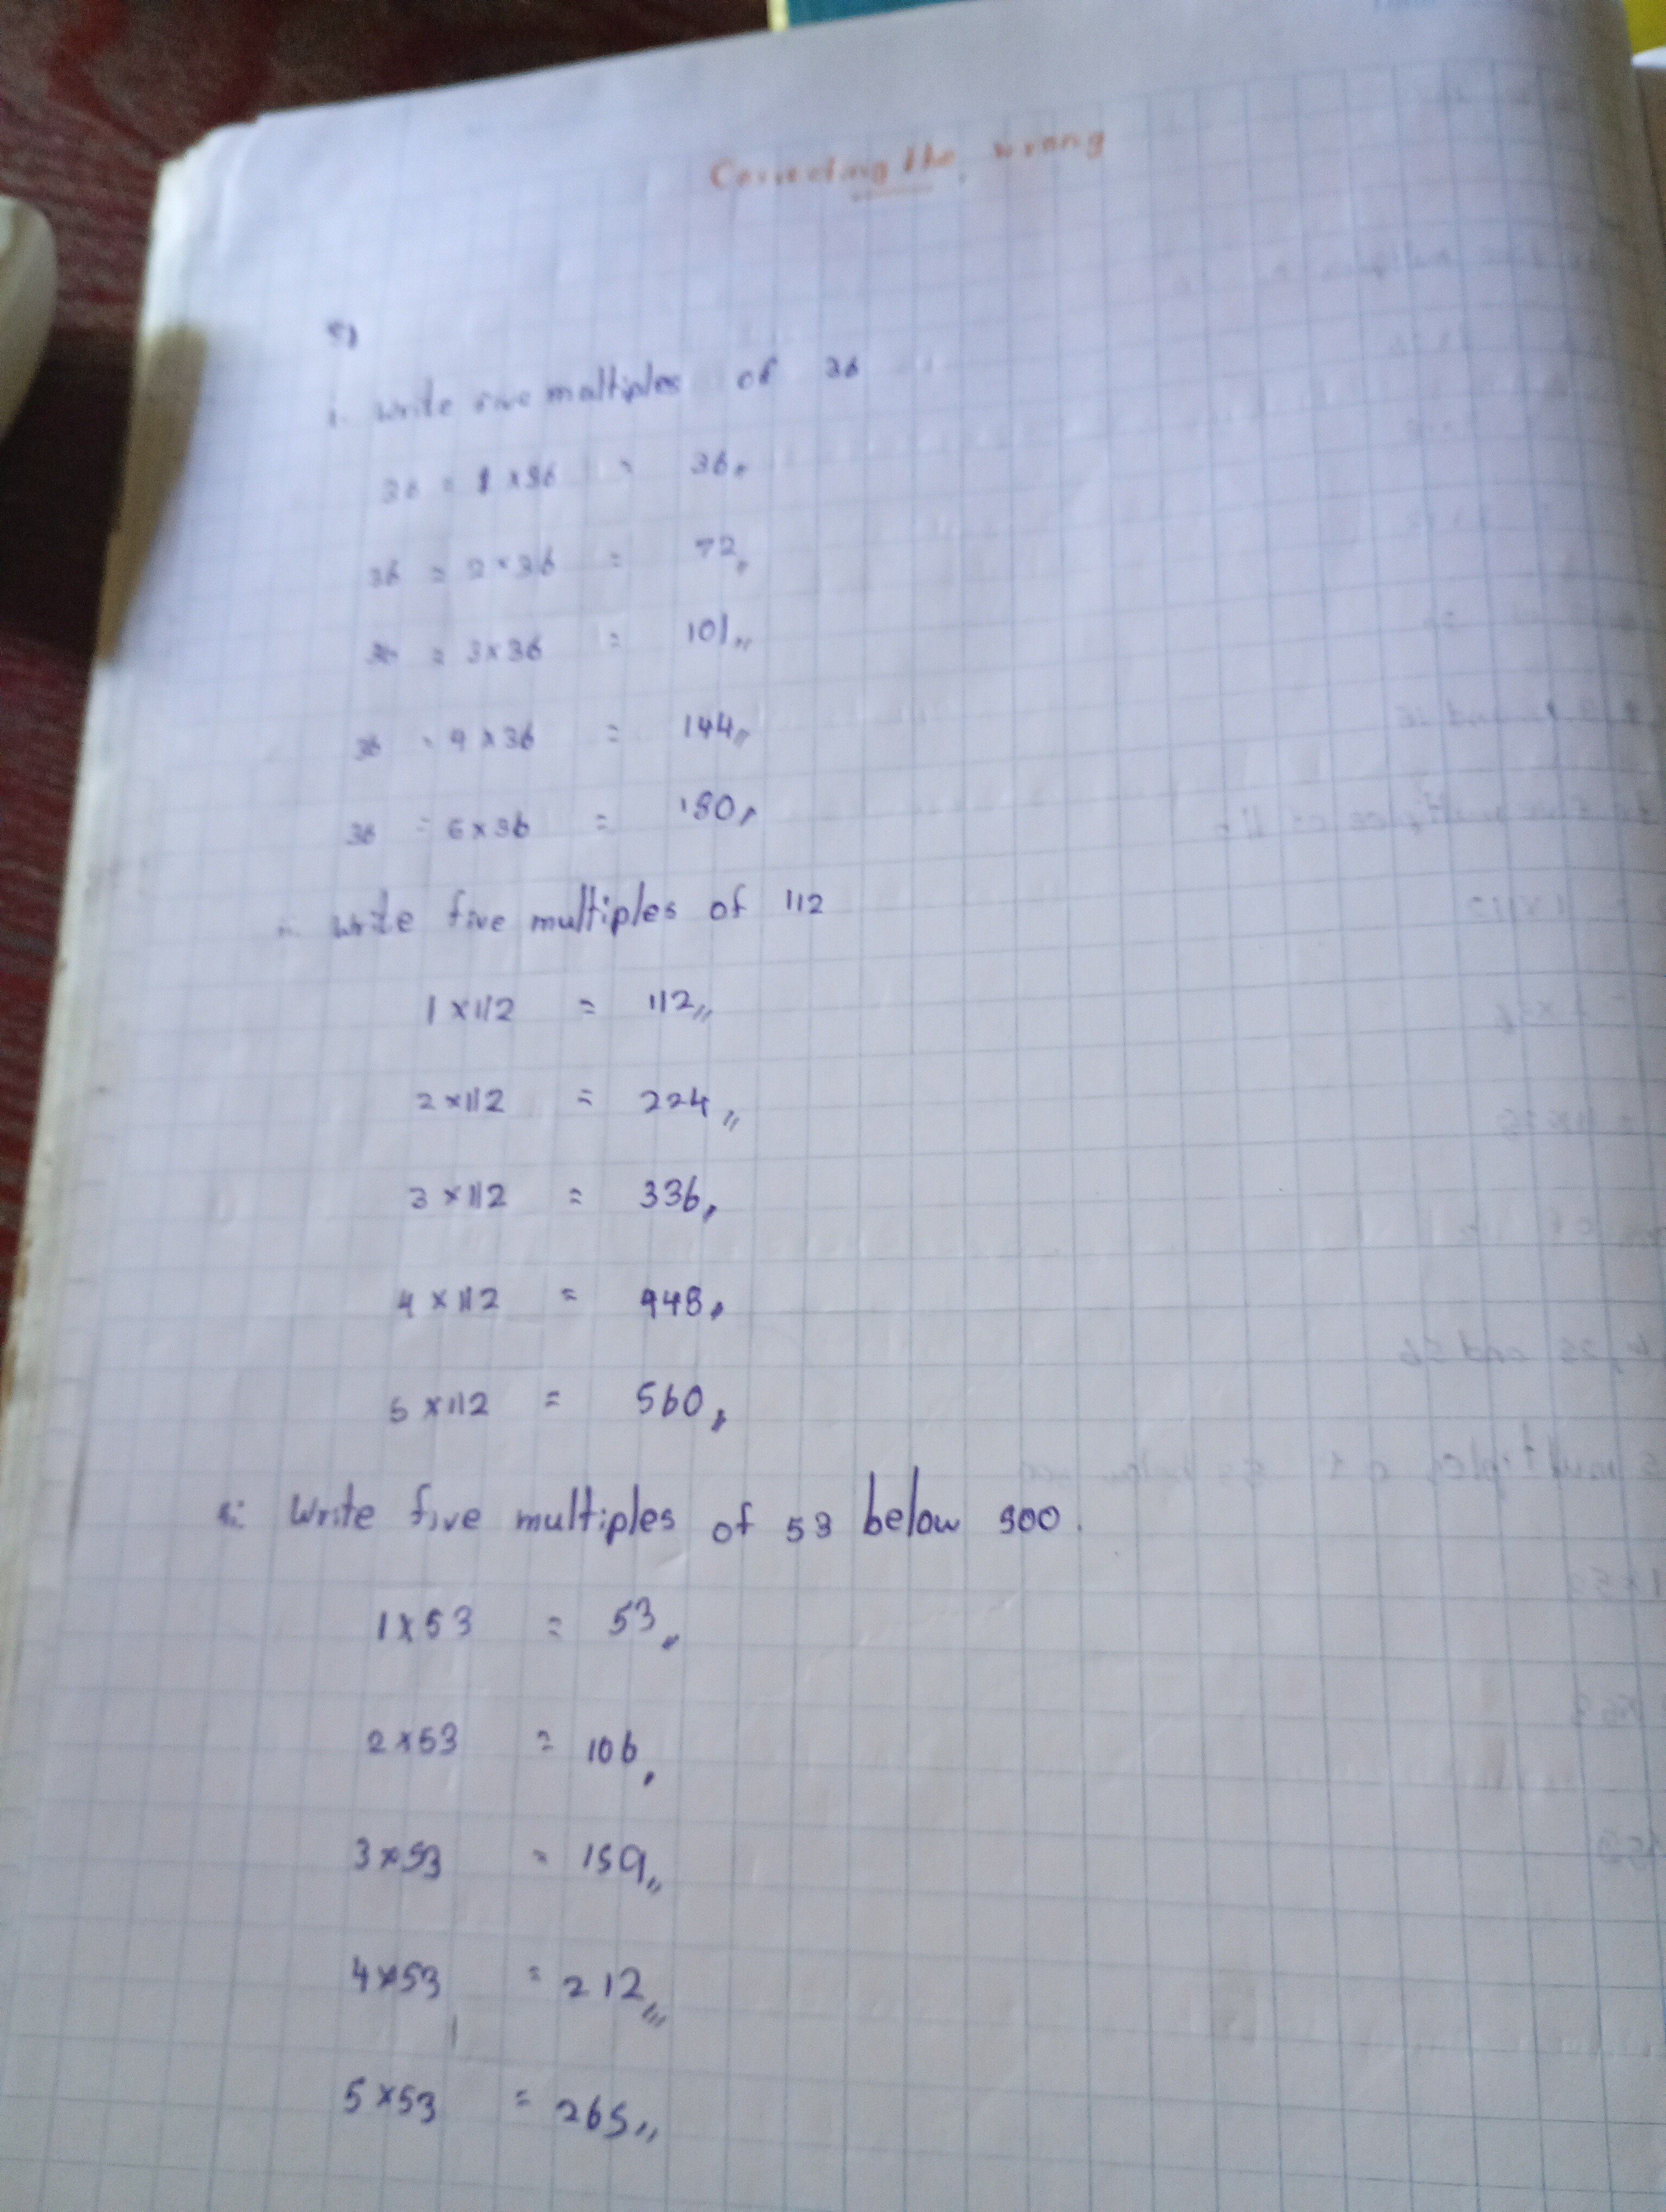 Correcting the wrong
5)
i. Write five maltiples of 36
36 = 1 x 36 = 36,,
36 = 2 x 36 = 72,,
36 = 3 x 36 = 101,,
36 = 4 x 36 = 144,,
36 = 5 x 36 = 180,,
ii. Write five multiples of 112
1 x 112 = 112,,
2 x 112 = 224,,
3 x 112 = 336,,
4 x 112 = 448,,
5 x 112 = 560,,
iii Write five multiples of 53 below 300.
1 x 53 = 53,,
2 x 53 = 106,,
3 x 53 = 159,,
4 x 53 = 212,,
5 x 53 = 265,,